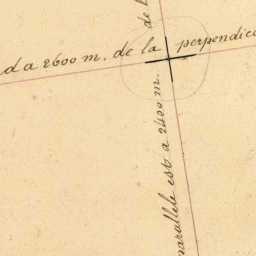 d a 2600 m. de la perpendic
parallele est a 2400 m. de l